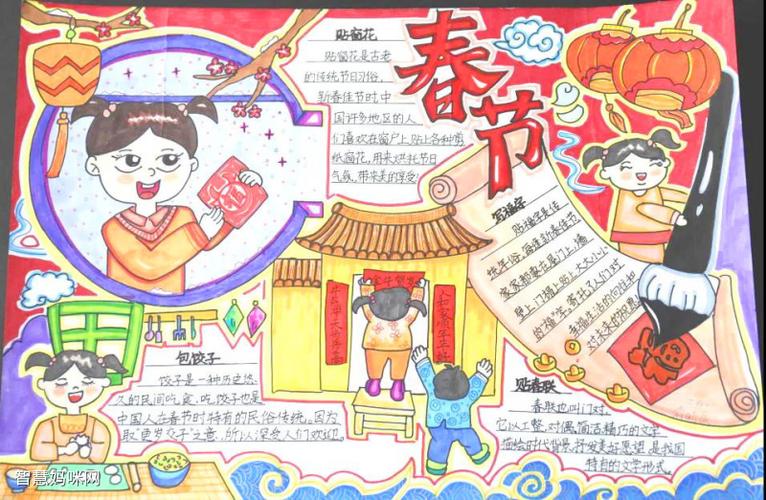 春节
贴窗花
贴窗花是古老
的传统节日习俗，
新春佳节时,中
国许多地区的人
们喜欢在窗户上贴上各种剪
纸窗花，用来烘托节日
气氛，带来美的享受!
写福字
贴福字是传
统年俗，每逢新春佳节，
家家都要在屋门上、墙
壁上、门楣上贴上大大小小
的“福”字。寄托了人们对
幸福生活的向往和
对未来的祝愿。
包饺子
饺子是一种历史悠
久的民间吃食，吃饺子也是
中国人在春节时特有的民俗传统。因为
取“更岁交子”之意，所以深受人们欢迎。
贴春联
春联也叫门对，
它以工整、对偶、简洁、精巧的文字
描绘时代背景,抒发美好愿望,是我国
特有的文学形式。
福
智慧妈咪网